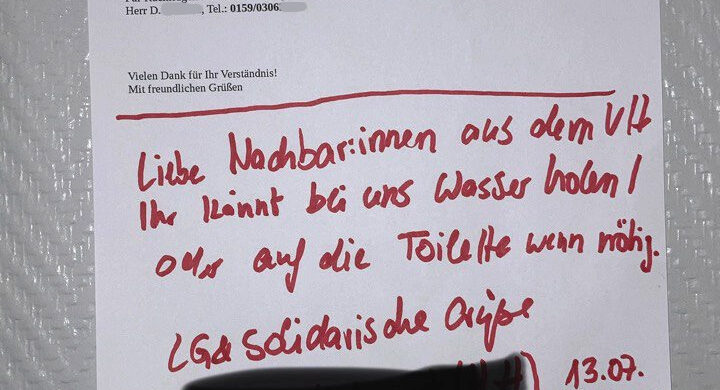 Herr D. , Tel.: 0159/0306
Vielen Dank für Ihr Verständnis!
Mit freundlichen Grüßen
Liebe Nachbar:innen aus dem VH
Ihr könnt bei uns Wasser holen /
oder auf die Toilette wenn nötig.
LG & Solidarische Grüße
13.07.